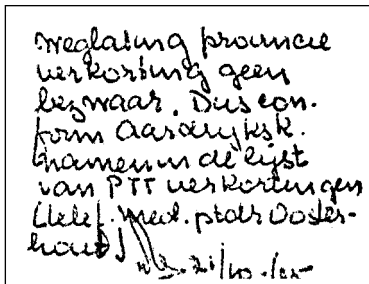 Weglating provincie
verkorting geen
bezwaar. Dus con-
form Aardrijksk.
namen in de lijst
van PTT verkortingen
(telef. med. ptdr Ooster-
hout)
21/10